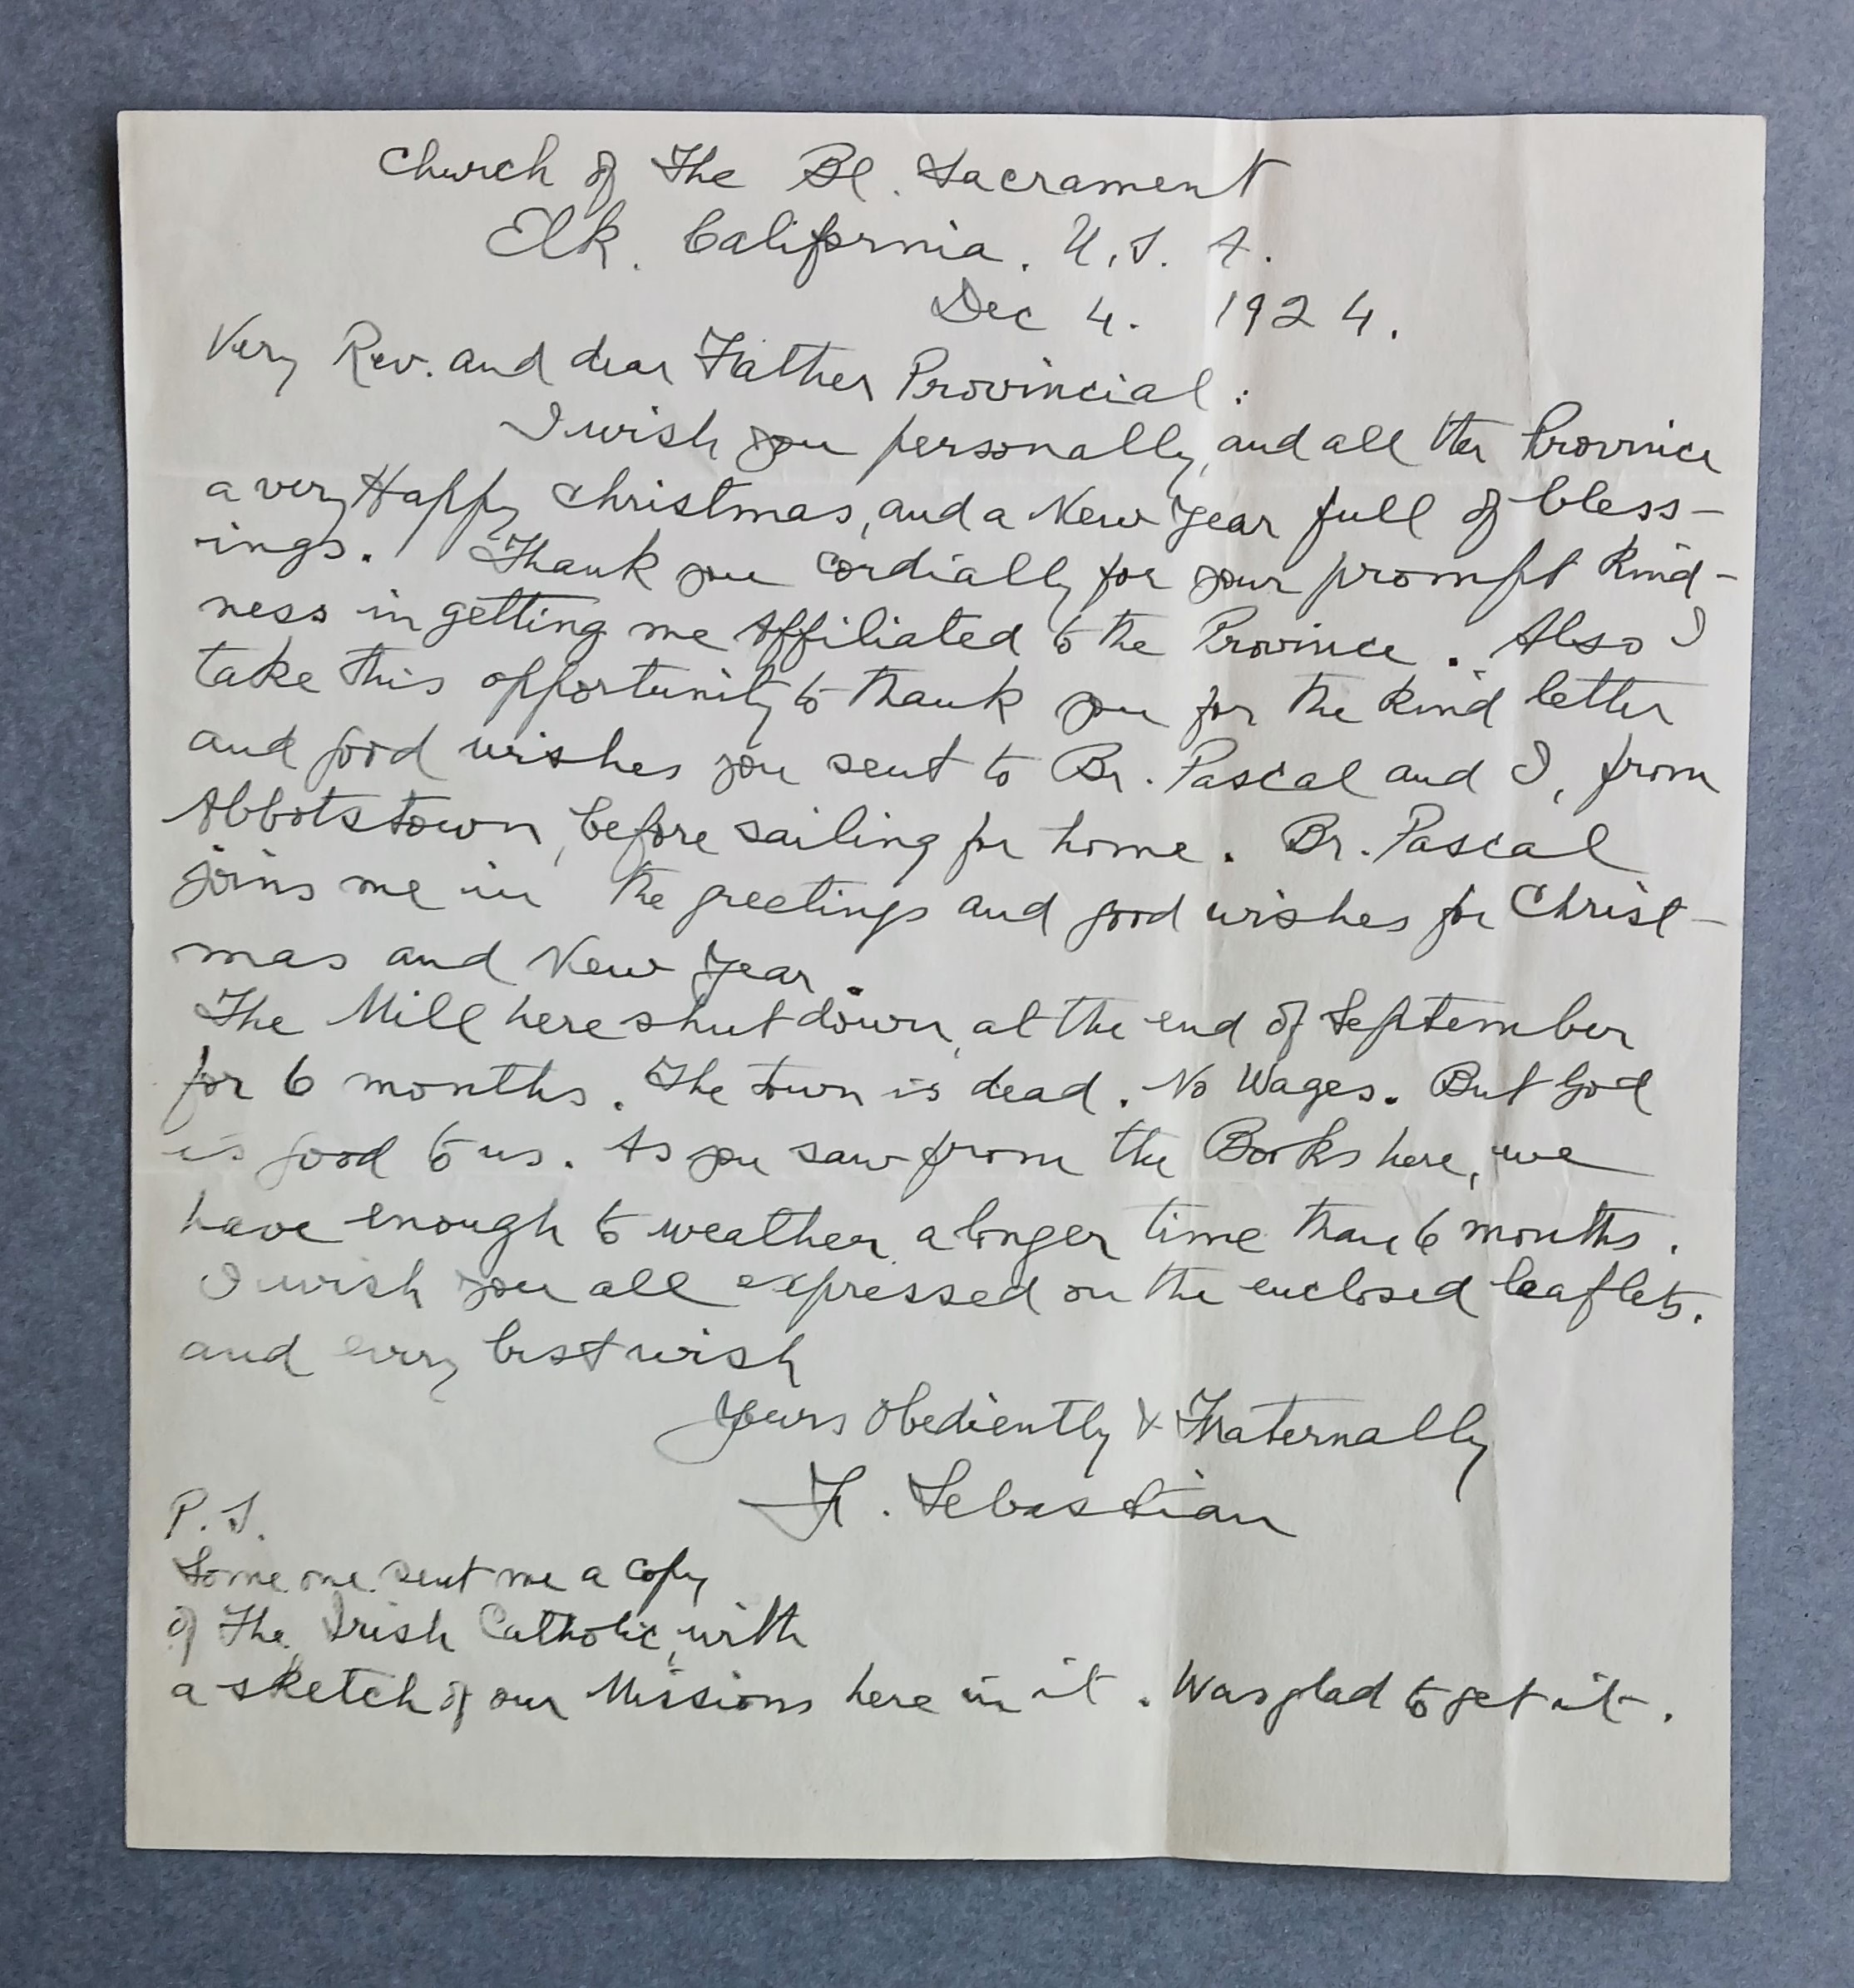 Church of The Bl. Sacrament
Elk. California. U.S.A.
Dec 4. 1924.
Very Rev. and dear Father Provincial:
I wish you personally, and all the Province
a very Happy Christmas, and a New Year full of bless-
ings. Thank you cordially for your prompt kind-
ness in getting me Affiliated to the Province. Also I
take this opportunity to thank you for the kind letter
and good wishes you sent to Br. Pascal and I, from
Abbotstown, before sailing for home. Br. Pascal
joins me in the greetings and good wishes for Christ-
mas and New Year.
The Mill here shut down, at the end of September
for 6 months. The town is dead. No Wages. But God
is good to us. As you saw from the Books here, we
have enough to weather a longer time than 6 months.
I wish you all expressed on the enclosed leaflets.
and every best wish
Yours obediently & Fraternally
Fr. Sebastian
P.S.
Some one sent me a copy
of The Irish Catholic, with
a sketch of our Missions here in it. Was glad to get it.